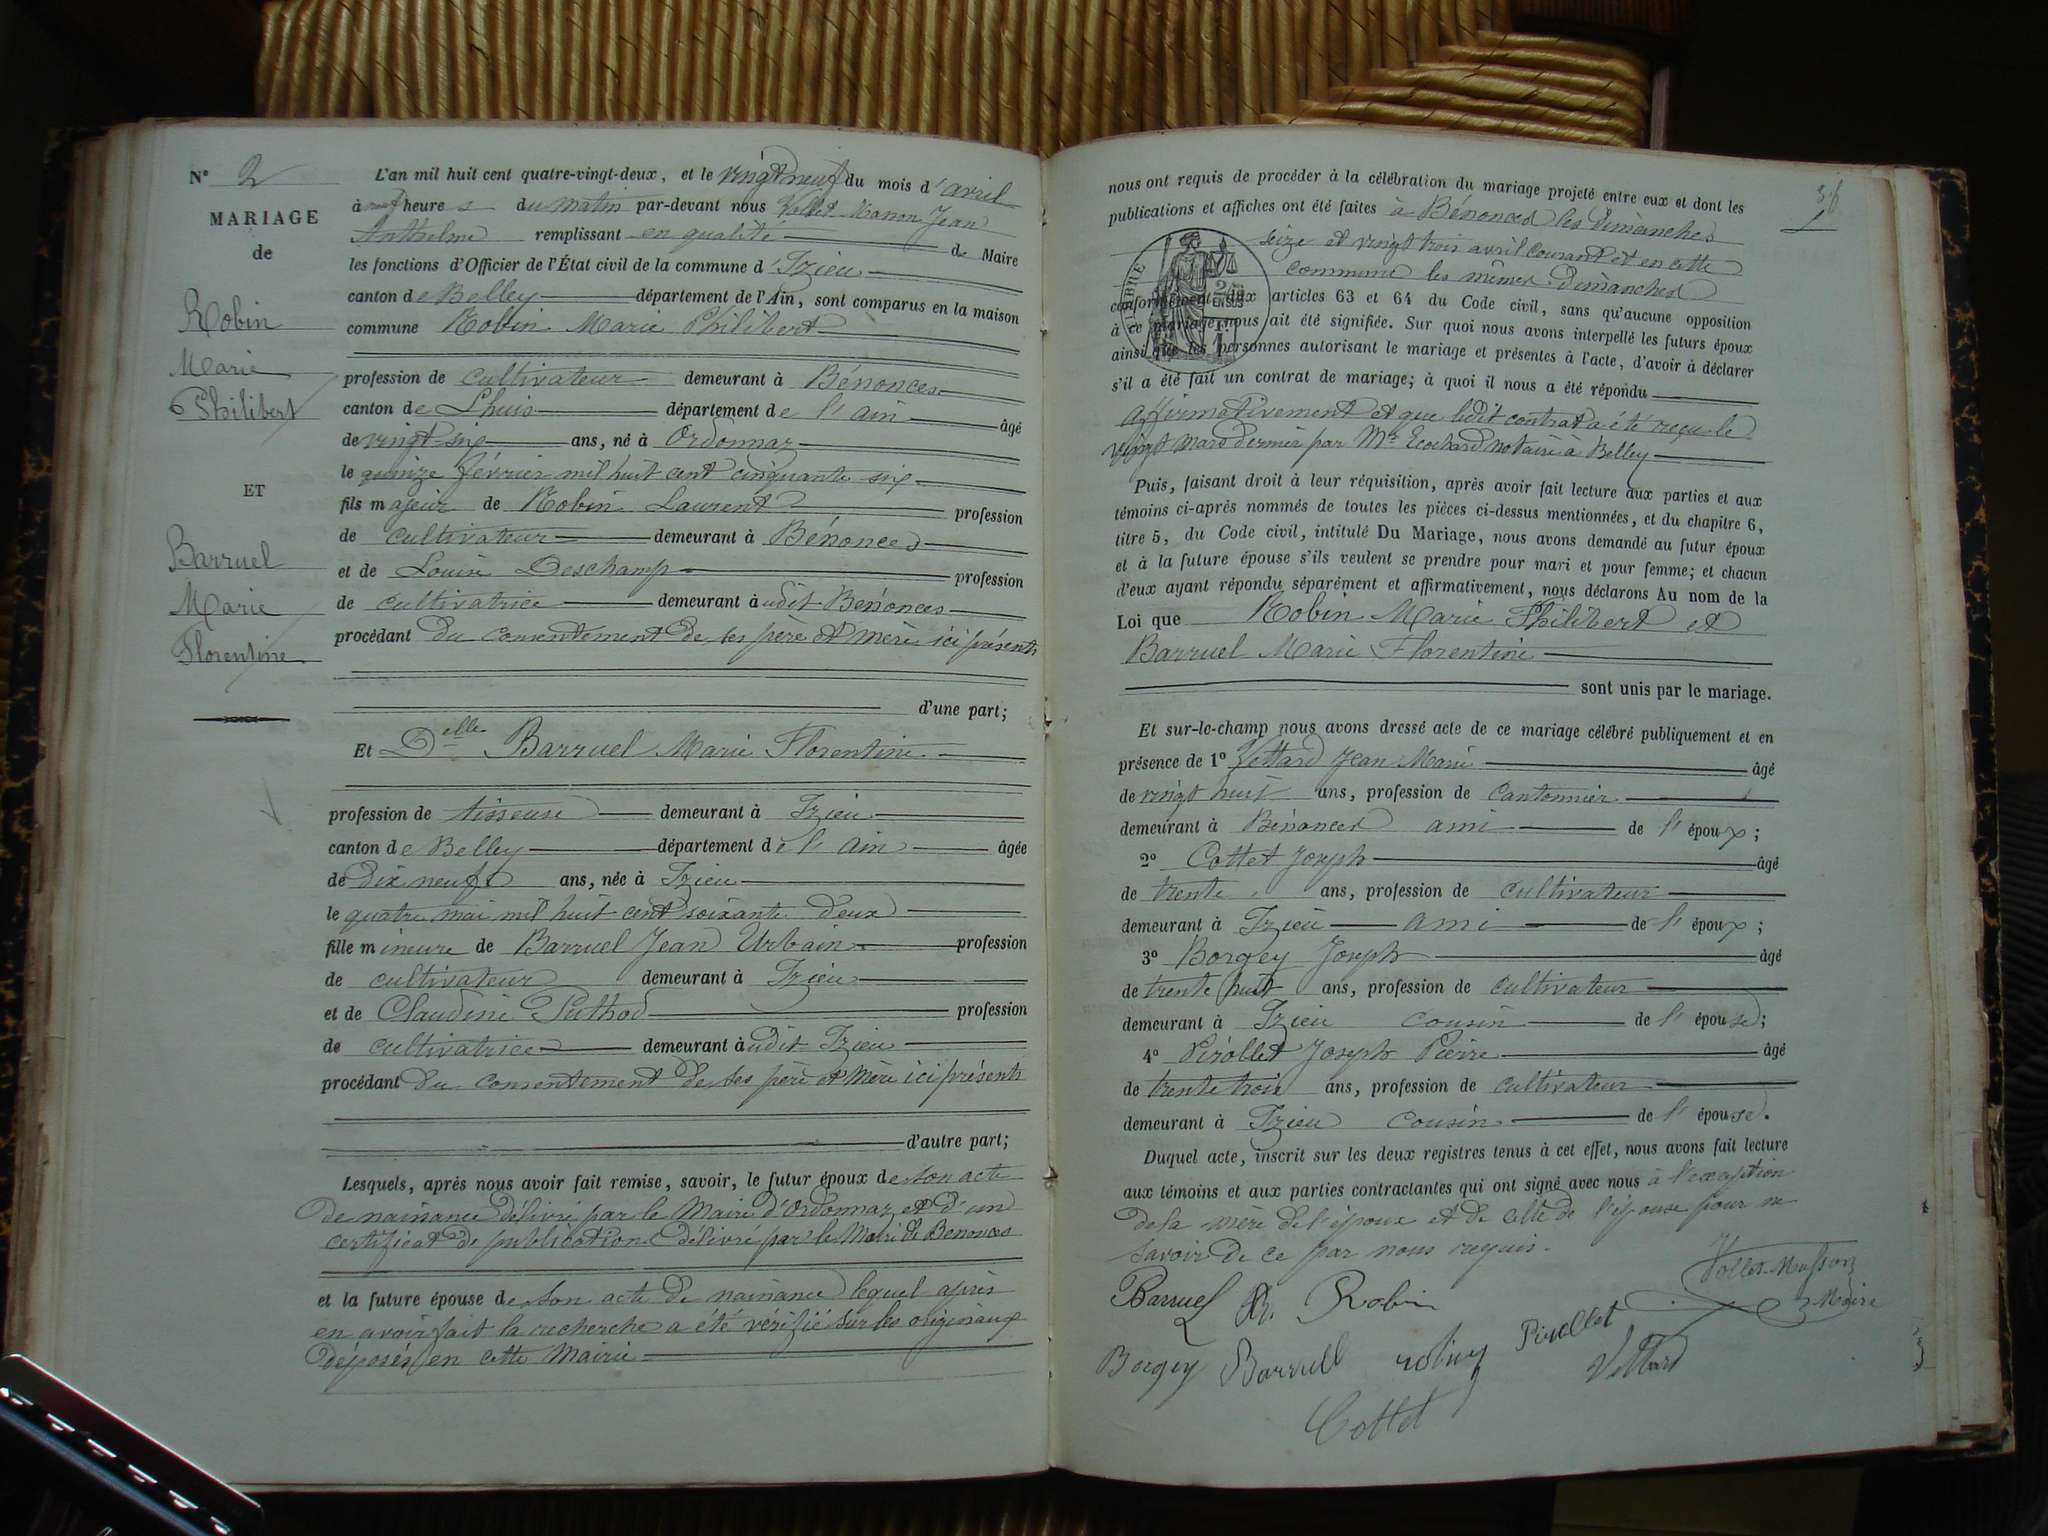 N° 2
MARIAGE
de
Robin
Marie
Philibert
ET
Barruel
Marie
Florentine
L'an mil huit cent quatre-vingt-deux, et le vingt neuf du mois d'avril
à neuf heures du matin par-devant nous Jean
Anthelme remplissant en qualité de Maire
les fonctions d'Officier de l'État civil de la commune d'Izieu
canton de Belley département de l'Ain, sont comparus en la maison
commune Robin Marie Philibert
profession de cultivateur demeurant à Bénonces
canton de Lhuis département de l'ain âgé
de vingt-six ans, né à Ordonnaz
le quinze février mil huit cent cinquante six
fils majeur de Robin Laurent profession
de cultivateur demeurant à Bénonces
et de Louise Deschamp profession
de cultivatrice demeurant audit Bénonces
procédant du consentement de ses père et mère ici présents
d'une part;
Et Delle Barruel Marie Florentine
profession de tisseuse demeurant à Izieu
canton de Belley département de l'Ain âgée
de dix neuf ans, née à Izieu
le quatre mai mil huit cent soixante deux
fille mineure de Barruel Jean Urbain profession
de cultivateur demeurant à Izieu
et de Claudine Puthod profession
de cultivatrice demeurant audit Izieu
procédant du consentement de ses père et mère ici présents
d'autre part;
Lesquels, après nous avoir fait remise, savoir, le futur époux de son acte
de naissance délivré par le Maire d'Ordonnaz et d'un
certificat de publication délivré par le Maire de Bénonces
et la future épouse de son acte de naissance lequel après
en avoir fait la recherche a été vérifié sur les originaux
déposés en cette Mairie
nous ont requis de procéder à la célébration du mariage projeté entre eux et dont les
publications et affiches ont été faites à Bénonces les dimanches
seize et vingt trois avril courant et en cette
commune les mêmes dimanches
conformément aux articles 63 et 64 du Code civil, sans qu'aucune opposition
à ce mariage nous ait été signifiée. Sur quoi nous avons interpellé les futurs époux
ainsi que les personnes autorisant le mariage et présentes à l'acte, d'avoir à déclarer
s'il a été fait un contrat de mariage; à quoi il nous a été répondu
affirmativement et que ledit contrat a été reçu le
vingt mars dernier par Me Ecochard notaire à Belley
Puis, faisant droit à leur réquisition, après avoir fait lecture aux parties et aux
témoins ci-après nommés de toutes les pièces ci-dessus mentionnées, et du chapitre 6,
titre 5, du Code civil, intitulé Du Mariage, nous avons demandé au futur époux
et à la future épouse s'ils veulent se prendre pour mari et pour femme; et chacun
d'eux ayant répondu séparément et affirmativement, nous déclarons Au nom de la
Loi que Robin Marie Philibert et
Barruel Marie Florentine
sont unis par le mariage.
Et sur-le-champ nous avons dressé acte de ce mariage célébré publiquement et en
présence de 1° Vettard Jean Marie âgé
de vingt huit ans, profession de cantonnier
demeurant à Bénonces ami de l'époux;
2° Cottet Joseph âgé
de trente ans, profession de cultivateur
demeurant à Izieu ami de l'époux;
3° Borgey Joseph âgé
de trente huit ans, profession de cultivateur
demeurant à Izieu cousin de l'épouse;
4° Pirollet Joseph Pierre âgé
de trente trois ans, profession de cultivateur
demeurant à Izieu cousin de l'épouse.
Duquel acte, inscrit sur les deux registres tenus à cet effet, nous avons fait lecture
aux témoins et aux parties contractantes qui ont signé avec nous à l'exception
de la mère de l'époux et de celle de l'épouse pour ne
savoir de ce par nous requis.
Barruel Robin
Maire
Borgey Barruel Pirollet Vettard
Cottet